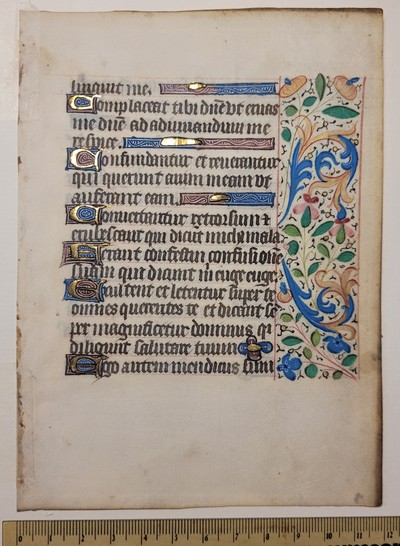 linquit me.
Complaceat tibi dñe vt eruas
me dñe ad adiuuandum me
respice.
Confundantur et reuereantur
qui querunt animam meam vt
auferant eam.
Conuertantur retrorsum et
erubescant qui dicunt michi mala
Ferant confestim confusione
suam qui dicunt m euge euge
Exultent et letentur super te
omnes querentes te et dicant se
per magnificetur dominus q
diligunt salutare tuum
Ego autem mendicus sum
0 1 2 3 4 5 6 7 8 9 10 11 12